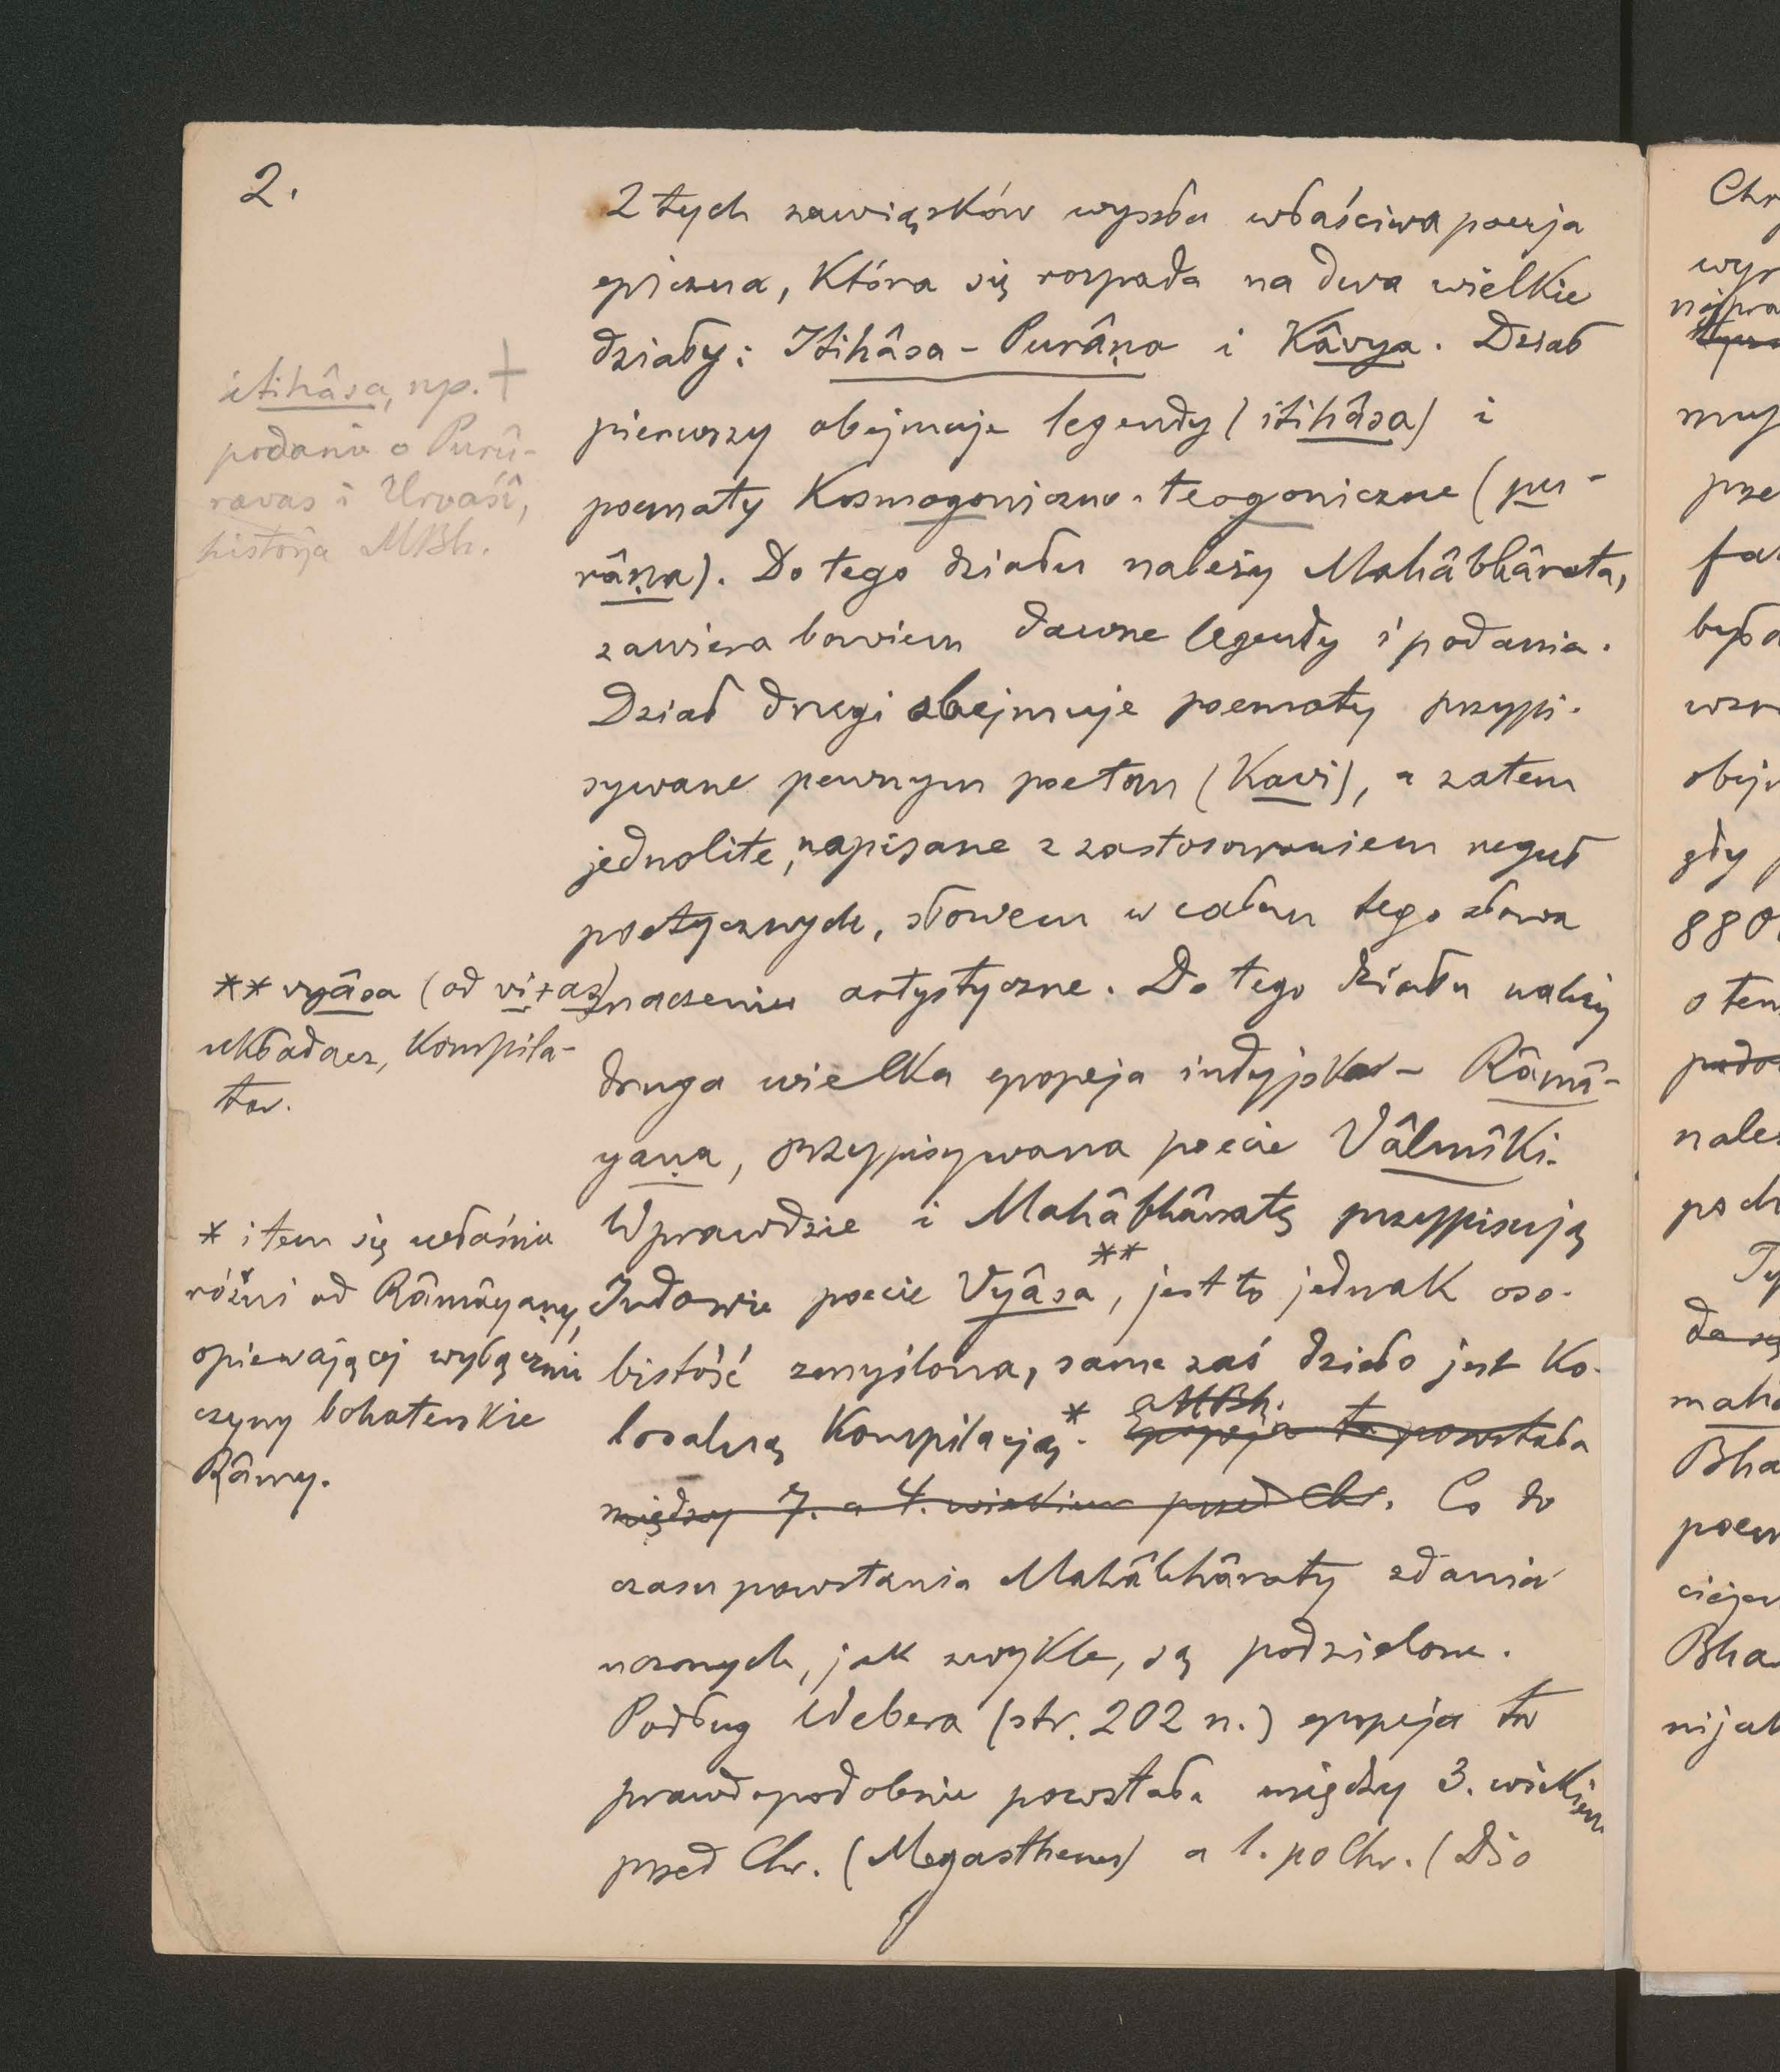 2.
Z tych zawiązków wyszła właściwa poezja
epiczna, która się rozpada na dwa wielkie
działy: Itihâsa - Purâṇa i Kâvya. Dział
pierwszy obejmuje legendy (itihâsa) i
poematy kosmogoniczno-teogoniczne (pu-
râṇa). Do tego działu należy Mahâbhârata,
zawiera bowiem dawne legendy i podania.
Dział drugi obejmuje poematy przypi-
sywane pewnym poetom (Kavi), a zatem
jednolite, napisane z zastosowaniem reguł
poetycznych, słowem w całem tego słowa
znaczeniu artystyczne. Do tego działu należy
druga wielka epopeja indyjska - Râmâ-
yaṇa, przypisywana poecie Vâlmîki.
Wprawdzie i Mahâbhâratę przypisują
Indowie poecie Vyâsa**, jest to jednak oso-
bistość zmyślona, same zaś dzieło jest ko-
losalną kompilacją*. a MBh.
epopeja ta powstała
między 7. a 4. wiekiem przed Chr. Co do
czasu powstania Mahâbhâraty zdania
uczonych, jak zwykle, są podzielone.
Podług Webera (str. 202 n.) epopeja ta
prawdopodobnie powstała między 3. wiekiem
przed Chr. (Megasthenes) a 1. po Chr. (Dio
itihâsa, np. +
podanie o Purû-
ravas i Urvaśî,
historja MBh.
** vyâsa (od vi+as)
układacz, kompila-
tor.
* i tem się właśnie
różni od Râmâyaṇy,
opiewającej wyłącznie
czyny bohaterskie
Râmy.
Chr
wyr
mują
prze
był
obej
gdy
880
o tem
nale
poch
Ty
mahâ
Bha
poem
Bha
nijak